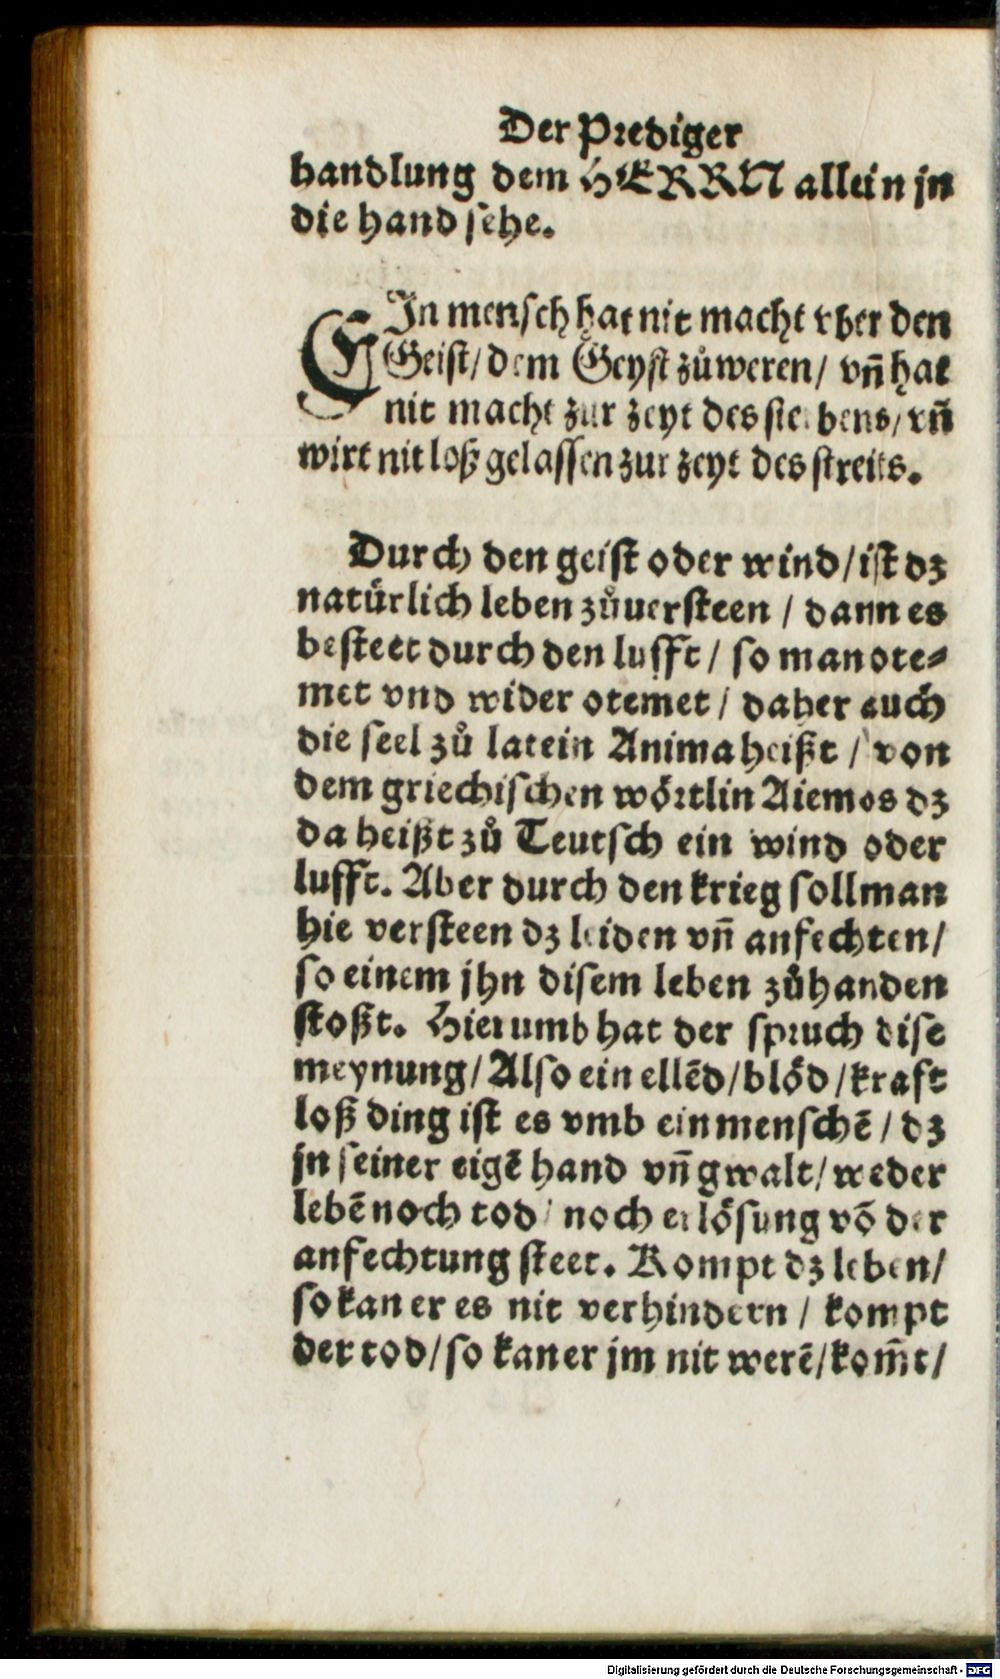 Der Prediger
handlung dem HERRN allein jn
die hand sehe.
EIn mensch hat nit macht vber den
Geist/ dem Geyst zůweren/ vñ hat
nit macht zur zeyt des sterbens/ vñ
wirt nit loß gelassen zur zeyt des streits.
Durch den geist oder wind/ ist dz
natürlich leben zůuersteen / dann es
besteet durch den lufft / so man ote⸗
met vnd wider otemet / daher auch
die seel zů latein Anima heißt / von
dem griechischen wörtlin Aiemos dz
da heißt zů Teutsch ein wind oder
lufft. Aber durch den krieg soll man
hie versteen dz leiden vñ anfechten/
so einem jhn disem leben zůhanden
stoßt. Hierumb hat der spruch dise
meynung/ Also ein ellēd/ blöd / kraft
loß ding ist es vmb ein menschē / dz
jn seiner eigē hand vñ gwalt/ weder
lebē noch tod/ noch erlösung vō der
anfechtung steet. Kompt dz leben/
so kan er es nit verhindern / kompt
der tod/ so kan er jm nit werē/ kom̄t/
Digitalisierung gefördert durch die Deutsche Forschungsgemeinschaft - DFG